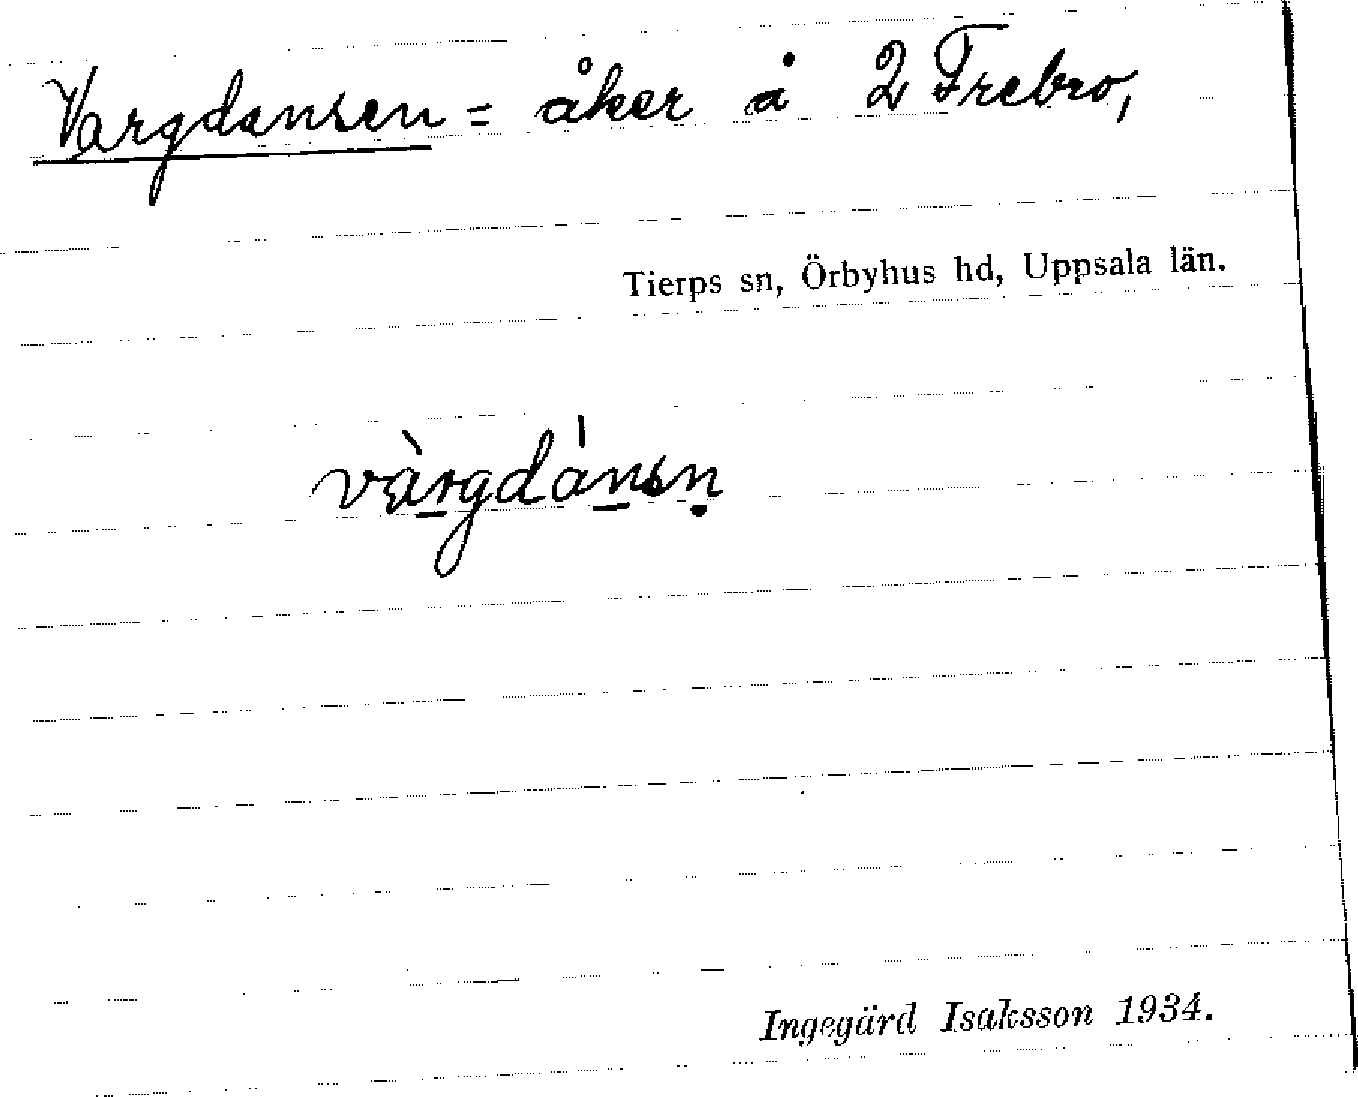 Vargdansen = åker å 2 Frebro,
Tierps sn, Örbyhus hd, Uppsala län.
vàrgdánsṇ
Ingegärd Isaksson 1934.